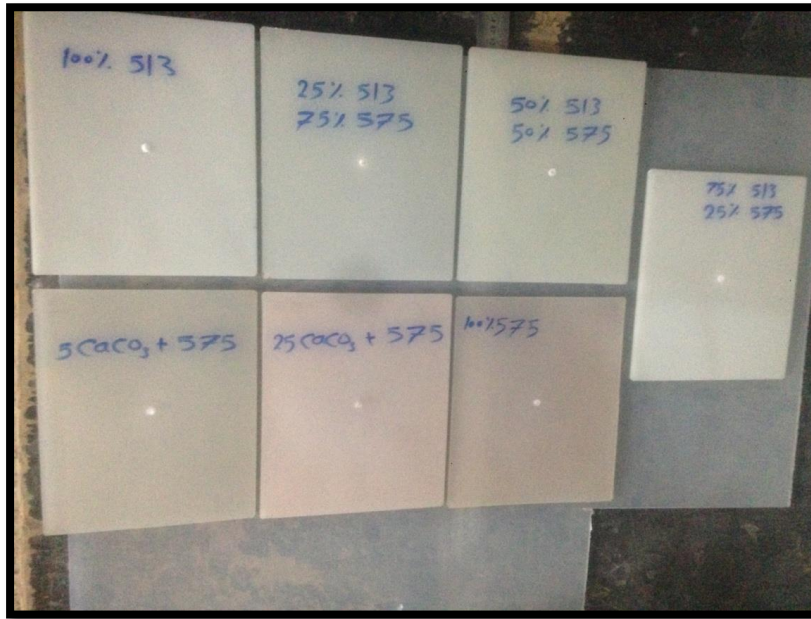 100% 513
25% 513
75% 575
50% 513
50% 575
75% 513
25% 575
5 CaCO₃ + 575
25 CaCO₃ + 575
100% 575